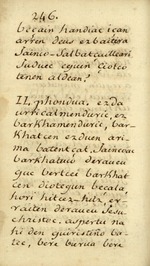 246.
becain handiac içan
arren, deus ez baitira
Jainco-Salbatçaillear
Juduec eguin çioten
tenon aldean?
II. phondua. ez da
urricalmendiric, ez
barkhamendiric, bar-
khatcen ez duen ari-
ma batentçat. Jaincoa
barkhatuco deraucu
gue bertcei barkhat-
cen diotegun becala
hori hitcez-hitz er-
raiten deraucu Jesu-
christoc. aspertu na-
hi den guiristino ba-
tec, bere burua bere